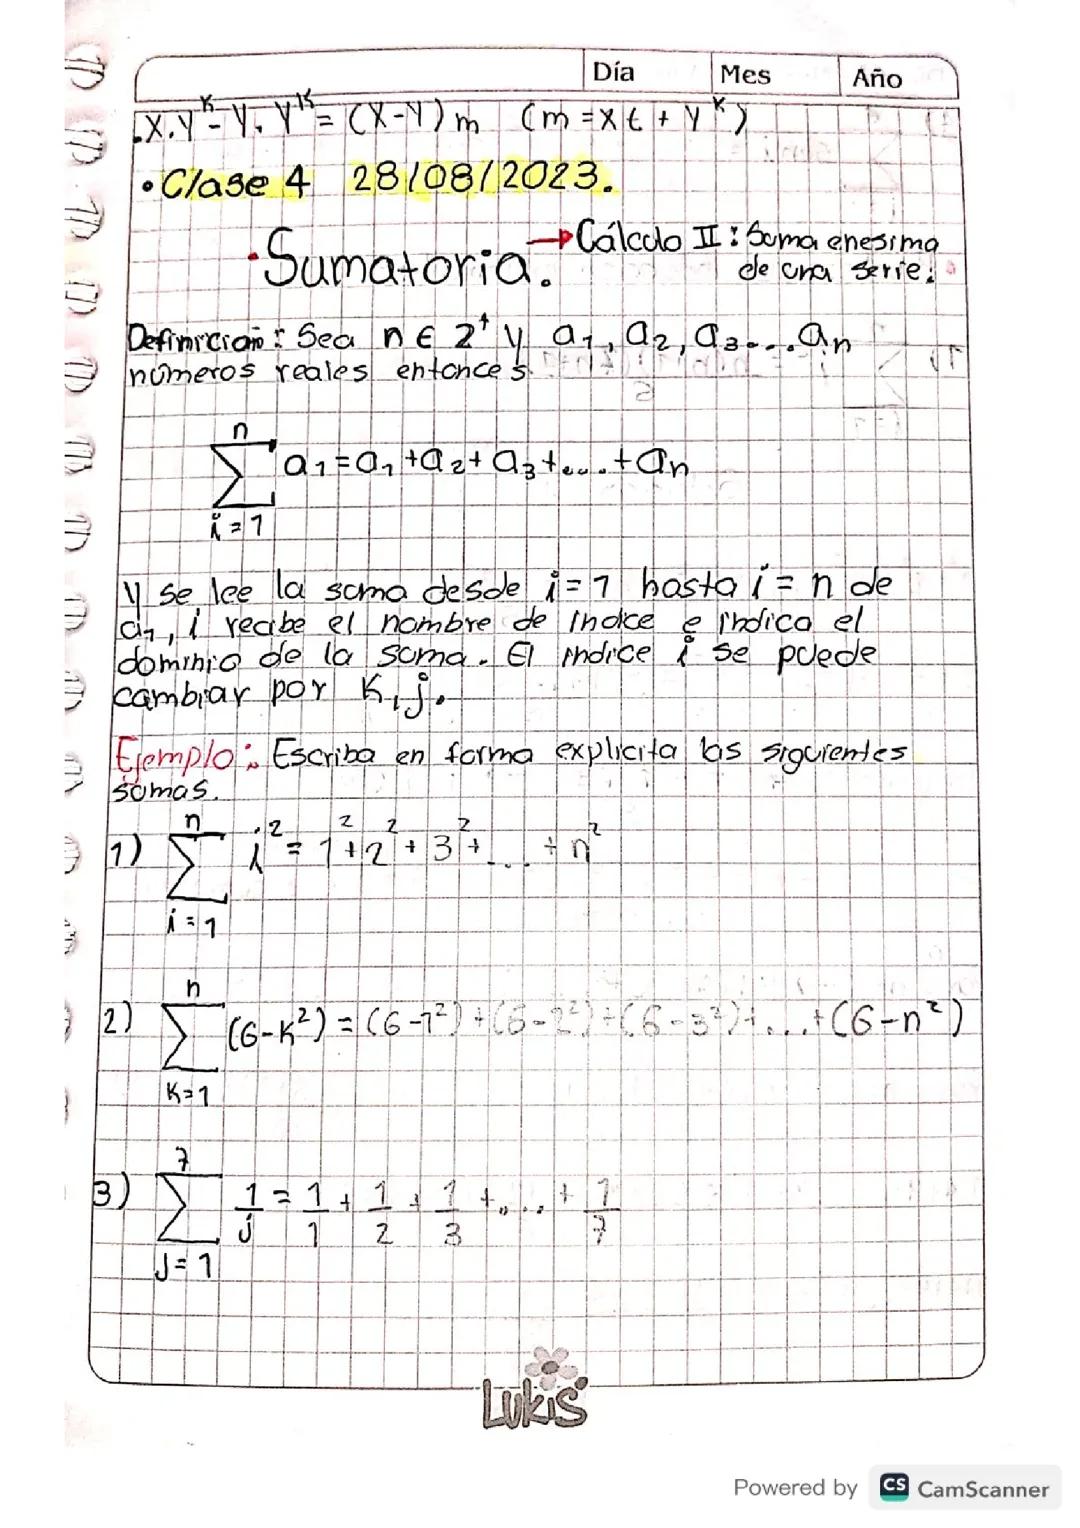 Día Mes Año
.X.Y^K - Y.Y^K = (X-Y)m (m = Xt + Y^K)
• Clase 4 28/08/2023.
• Sumatoria. → Cálculo II: Suma enesima
de una serie.
Definición: Sea n ∈ Z⁺ y a₁, a₂, a₃... an
números reales entonces
n
∑ a₁ = a₁ + a₂ + a₃ + .... + an
i = 1
y se lee la suma desde i = 1 hasta i = n de
a₁, i recibe el nombre de indice e indica el
dominio de la suma. El indice i se puede
cambiar por K, j.
Ejemplo: Escriba en forma explicita las siguientes
sumas.
n
1) ∑ i² = 1² + 2² + 3² + ... + n²
i = 1
n
2) ∑ (6-K²) = (6-1²) + (6-2²) + (6-3²) + ... + (6-n²)
K=1
7
3) ∑ 1/j = 1/1 + 1/2 + 1/3 + .... + 1/7
J = 1
LUKIS
Powered by CS CamScanner